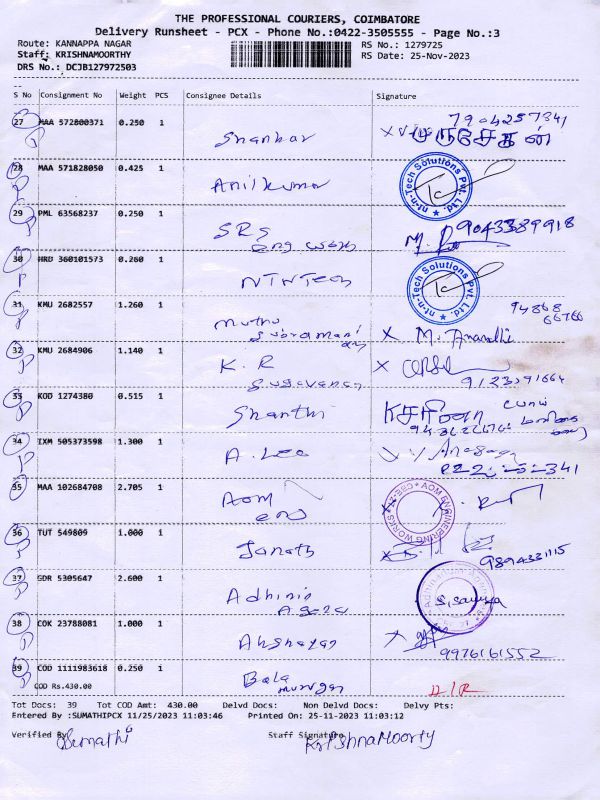 THE PROFESSIONAL COURIERS, COIMBATORE
Delivery Runsheet - PCX - Phone No.:0422-3505555 - Page No.:3
Route: KANNAPPA NAGAR RS No.: 1279725
Staff: KRISHNAMOORTHY RS Date: 25-Nov-2023
DRS No.: DCJB127972503
S No Consignment No Weight PCS Consignee Details Signature
27 MAA 572800371 0.250 1 Shankar 7904257341
முருசேகன்
28 MAA 571828050 0.425 1 Anilkumar
nt-n-Tech Solutions Pvt. Ltd.
29 PML 63568237 0.250 1 SRS 9043389918
Eng works
30 HRD 360101573 0.260 1 NTNTech
nt-n-Tech Solutions Pvt. Ltd.
31 KMU 2682557 1.260 1 Muthu 94868
Subramani 66766
X M. Anandhi
32 KMU 2684906 1.140 1 K. R X
Sugavanan
33 KOD 1274380 0.515 1 Shanthi
34 IXM 505373598 1.300 1 A. Leo
35 MAA 102684708 2.705 1 AOM
eng
AOM ENGINEERING WORKS CBE-27
36 TUT 549809 1.000 1 Janath
9894331115
37 GDR 5305647 2.600 1 Adhinio
S. Saranya
38 COK 23788081 1.000 1 Akshayan X
9976161552
39 COD 1111983618 0.250 1 Bala
COD Rs.430.00 murugan D/R
Tot Docs: 39 Tot COD Amt: 430.00 Delvd Docs: Non Delvd Docs: Delvy Pts:
Entered By :SUMATHIPCX 11/25/2023 11:03:46 Printed On: 25-11-2023 11:03:12
Verified By Sumathi Staff Signature KrishnaMoorty